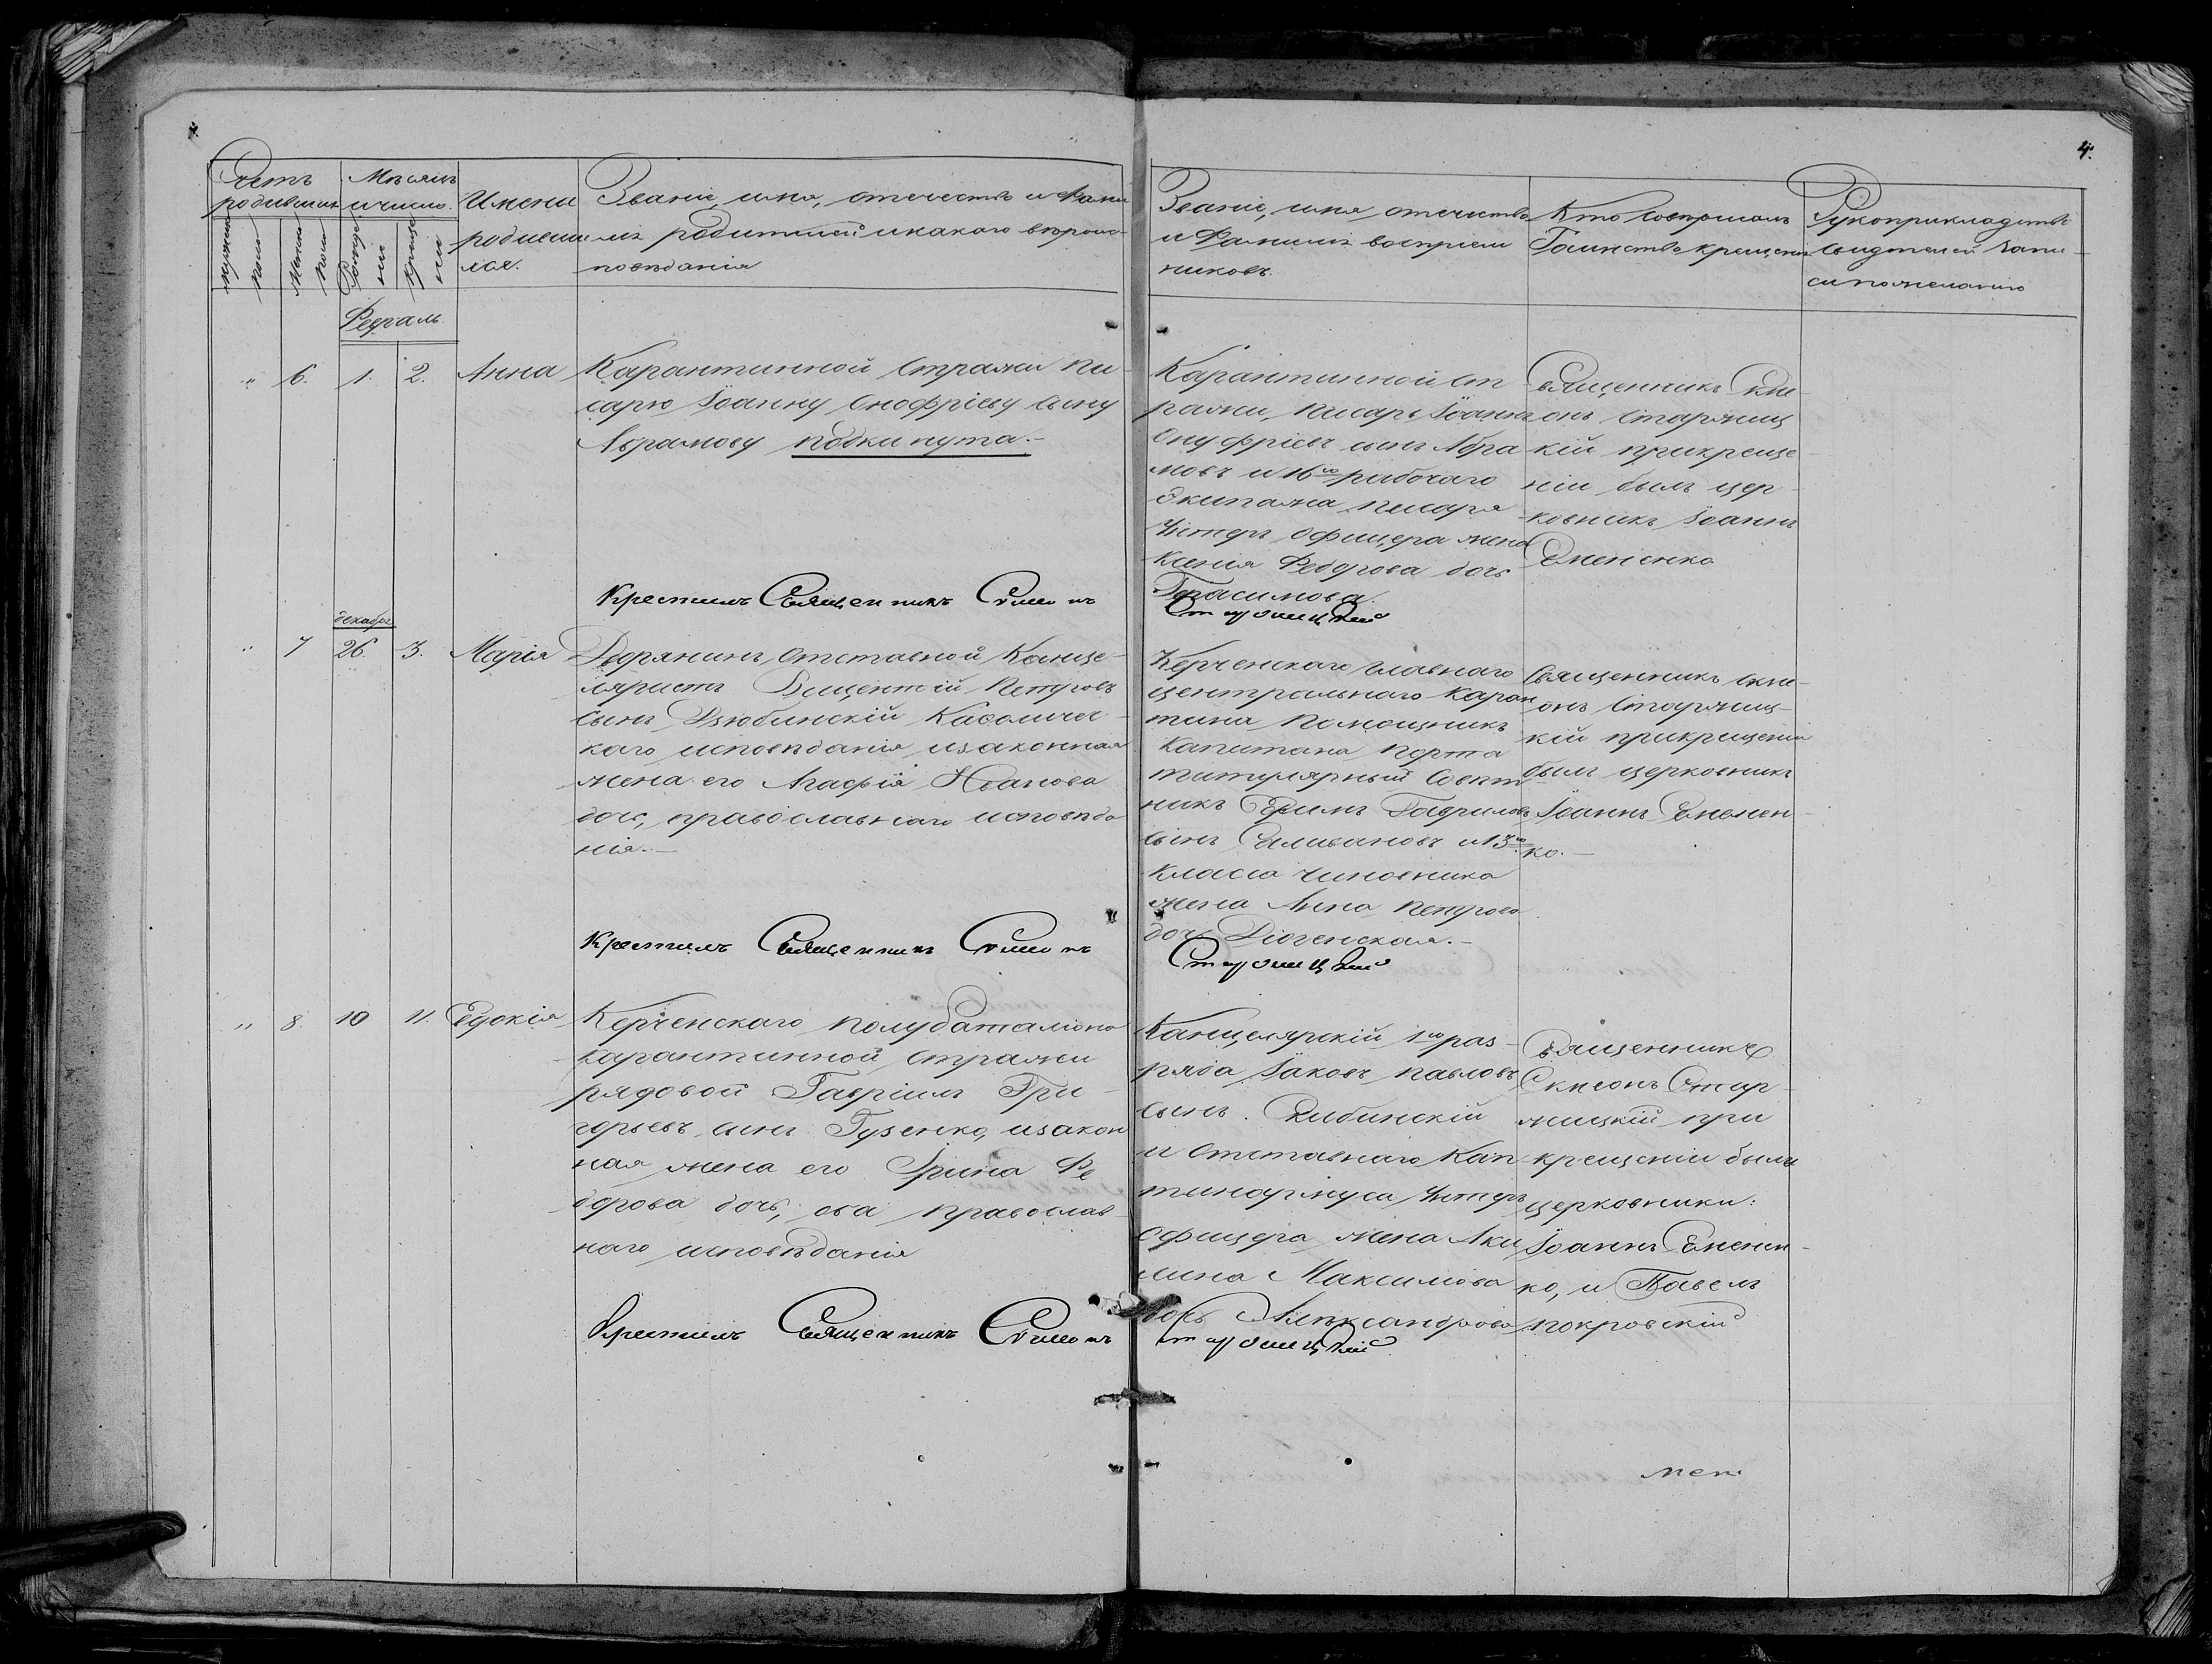 4.
Счетъ
родившихъ
Мѣсяцъ
и число.
Имена
родивши
мся.
Званіе, имя, отечество и Фами
лія родителей и какого вѣроис
повѣданія
мужеска
пола
Женска
пола
Рожде
нія
Креще
нія
Февраль.
Званіе, имя, отечество
и Фамилія воспріем
никовъ.
Кто совершалъ
Таинство крещенія
Рукоприкладство
свидѣтелей запи-
си по желанію
" 6. 1. 2. Анна
Карантинной Стражи Пи-
сарю Іоанну Онофріеву сыну
Абрамову подкинута.-
Карантинной Ст
ражи, Писарь Іоаннъ
Онуфріевъ сынъ Абра
мовъ и 16го рабочаго
Экипажа Писаря
Унтеръ офицера жена
Ксенія Федорова дочь
Герасимова.
Священникъ Сим-
онъ Старжиц
кій при креще-
ніи былъ цер-
ковникъ Іоаннъ
Еменченко
Крестилъ Священникъ Симонъ Старжицкій
декабря
" 7 26. 3. Марія
Дворянинъ Отставной Канце-
ляристъ Викентій Петровъ
сынъ Дзюбинскій Католичес-
каго исповѣданія, и законная
жена его Агафія Иванова
дочь, православнаго исповѣда
нія.-
Керченскаго главнаго
центральнаго Каран
тина Помощникъ
Капитана Порта
титулярный Совѣт
никъ Ефимъ Гавриловъ
сынъ Селивановъ и 13го
класса чиновника
жена Анна Петрова
дочь Діогенская.-
Священникъ Сим-
онъ Старжиц-
кій при крещеніи
былъ церковникъ
Іоаннъ Еменчен-
ко.-
Крестилъ Священникъ Симонъ Старжицкій
" 8. 10 11. Евдокія
Керченскаго Полубаталіона
карантинной Стражи
рядовой Гавріилъ Гри-
горьевъ сынъ Гузенко, и закон
ная жена его Ірина Фе
дорова дочь; оба Православ-
наго исповѣданія
Канцелярскій 1го раз-
ряда Іаковъ Павловъ
сынъ. Рыбинскій
и Отставнаго Кап-
тинармуса Унтеръ
офицера жена Аки
лина Максимова
дочь Александрова
Священникъ
Симеонъ Стар-
жицкій при
крещеніи были
церковники:
Іоаннъ Еменчен-
ко, и Павелъ
Покровскій
Крестилъ Священникъ Симонъ Старжицкій